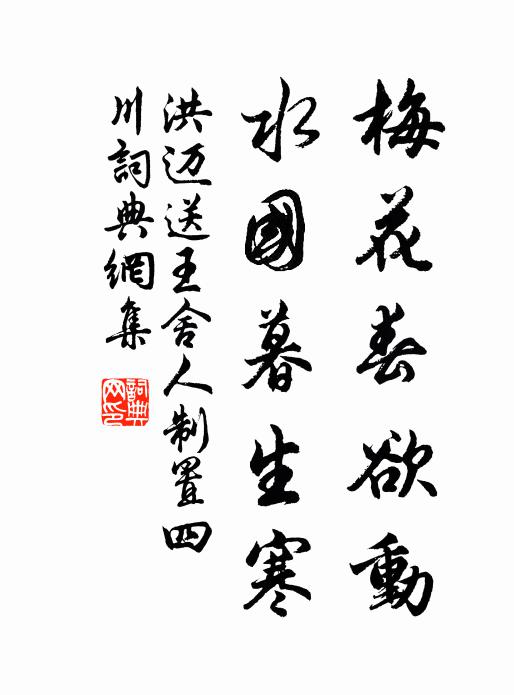 梅花春欲動
水國暮生寒
洪迈送王舍人制置四
川詞典網集
詞典
网印